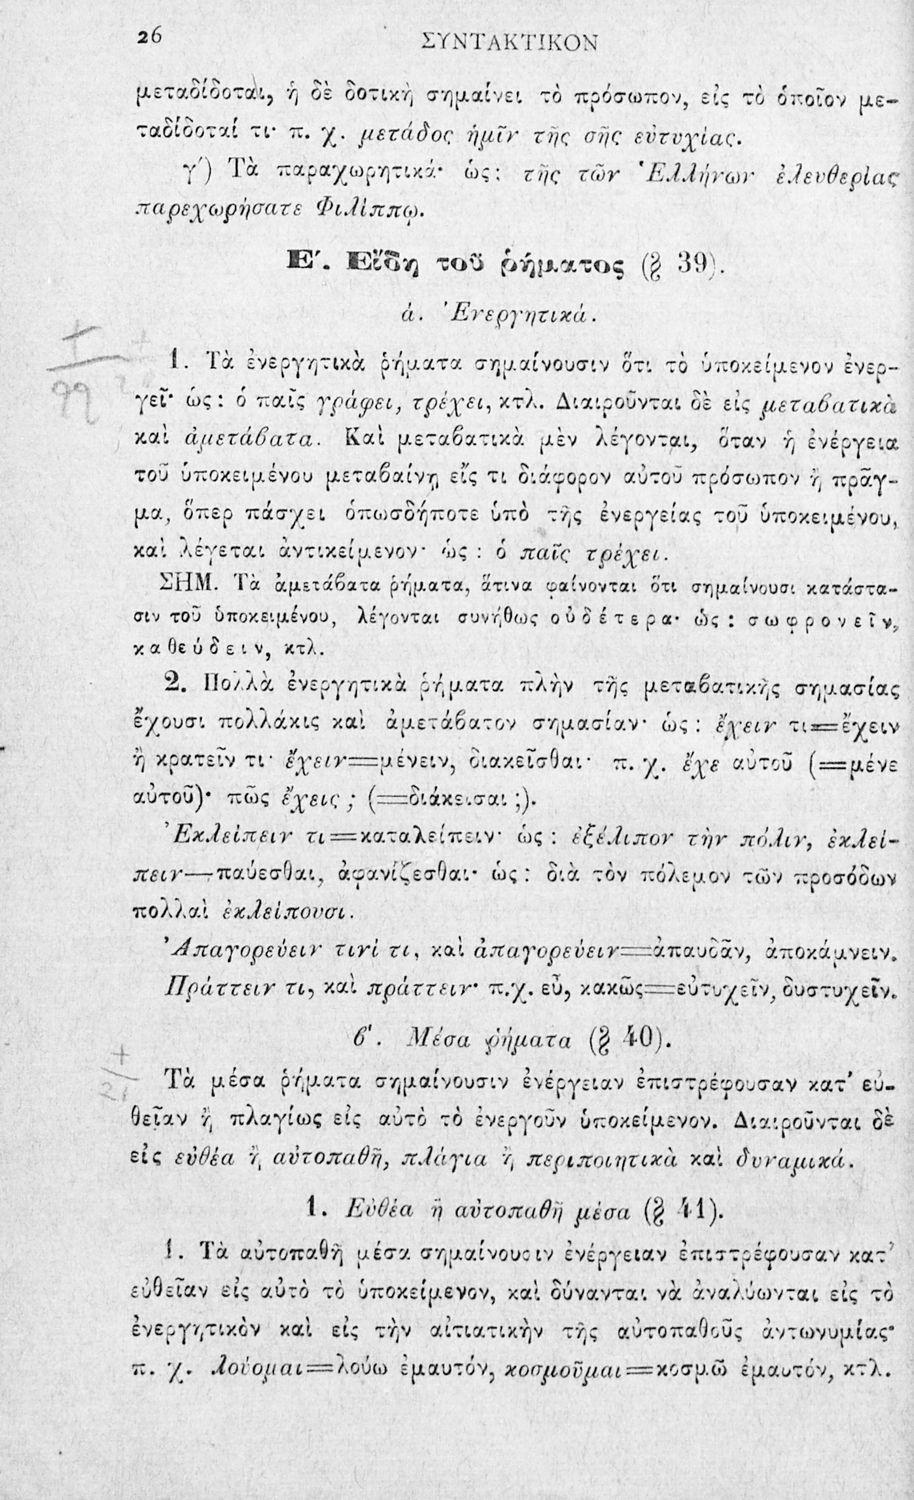 26
ΣΥΝΤΑΚΤΙΚΟΝ
μεταδίδοται, ἡ δὲ δοτικὴ σημαίνει τὸ πρόσωπον, εἰς τὸ ὁποῖον με-
ταδίδοταί τι· π. χ. μετάδος ἡμῖν τῆς σῆς εὐτυχίας.
γ΄) Τὰ παραχωρητικά· ὡς: τῆς τῶν Ἑλλήνων ἐλευθερίας
παρεχωρήσατε Φιλίππῳ.
Ε΄. Εἴδη τοῦ ῥήματος (§ 39).
ά. Ἐνεργητικά.
1. Τὰ ἐνεργητικὰ ῥήματα σημαίνουσιν ὅτι τὸ ὑποκείμενον ἐνερ-
γεῖ· ὡς: ὁ παῖς γράφει, τρέχει, κτλ. Διαιροῦνται δὲ εἰς μεταβατικὰ
99
καὶ ἀμετάβατα. Καὶ μεταβατικὰ μὲν λέγονται, ὅταν ἡ ἐνέργεια
τοῦ ὑποκειμένου μεταβαίνῃ εἴς τι διάφορον αὐτοῦ πρόσωπον ἢ πρᾶγ-
μα, ὅπερ πάσχει ὁπωσδήποτε ὑπὸ τῆς ἐνεργείας τοῦ ὑποκειμένου,
καὶ λέγεται ἀντικείμενον· ὡς : ὁ παῖς τρέχει.
ΣΗΜ. Τὰ ἀμετάβατα ῥήματα, ἅτινα φαίνονται ὅτι σημαίνουσι κατάστα-
σιν τοῦ ὑποκειμένου, λέγονται συνήθως οὐδέτερα· ὡς : σωφρονεῖν,
καθεύδειν, κτλ.
2. Πολλὰ ἐνεργητικὰ ῥήματα πλὴν τῆς μεταβατικῆς σημασίας
ἔχουσι πολλάκις καὶ ἀμετάβατον σημασίαν· ὡς: ἔχειν τι=ἔχειν
ἢ κρατεῖν τι· ἔχειν=μένειν, διακεῖσθαι· π. χ. ἔχε αὐτοῦ (=μένε
αὐτοῦ)· πῶς ἔχεις ; (=διάκεισαι ;).
Ἐκλείπειν τι=καταλείπειν· ὡς : ἐξέλιπον τὴν πόλιν, ἐκλεί-
πειν—παύεσθαι, ἀφανίζεσθαι· ὡς: διὰ τὸν πόλεμον τῶν προσόδων
πολλαὶ ἐκλείπουσι.
Ἀπαγορεύειν τινί τι, καὶ ἀπαγορεύειν=ἀπαυδᾶν, ἀποκάμνειν.
Πράττειν τι, καὶ πράττειν· π.χ. εὖ, κακῶς=εὐτυχεῖν, δυστυχεῖν.
β'. Μέσα ῥήματα (§ 40).
Τὰ μέσα ῥήματα σημαίνουσιν ἐνέργειαν ἐπιστρέφουσαν κατ' εὐ-
θεῖαν ἢ πλαγίως εἰς αὐτὸ τὸ ἐνεργοῦν ὑποκείμενον. Διαιροῦνται δὲ
εἰς εὐθέα ἢ αὐτοπαθῆ, πλάγια ἢ περιποιητικὰ καὶ δυναμικά.
1. Εὐθέα ἢ αὐτοπαθῆ μέσα (§ 41).
1. Τὰ αὐτοπαθῆ μέσα σημαίνουσιν ἐνέργειαν ἐπιστρέφουσαν κατ'
εὐθεῖαν εἰς αὐτὸ τὸ ὑποκείμενον, καὶ δύνανται νὰ ἀναλύωνται εἰς τὸ
ἐνεργητικὸν καὶ εἰς τὴν αἰτιατικὴν τῆς αὐτοπαθοῦς ἀντωνυμίας·
π. χ. λούομαι=λούω ἐμαυτόν, κοσμοῦμαι=κοσμῶ ἐμαυτόν, κτλ.